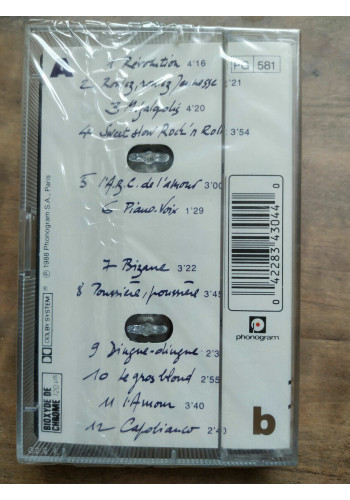 A
1 Révolution 4'16
PG 581
2 Rouez, rouez Jeunesse 21
3 Mégalopolis 4'20
4 Sweet slow Rock'n Roll 3'54
5 l'A.B.C. de l'amour 3'00
6 Piano-Voix 1'29
7 Bizarre 3'22
8 Poussière, poussière 3'45
9 Dingue-dingue 2'3
10 Le gros blond 2'55
11 l'Amour 3'40
12 Capobianco 2'40
℗ 1988 Phonogram S.A., Paris
DOLBY SYSTEM
BIOXYDE DE CHROME
0 42283 43044 0
phonogram
b